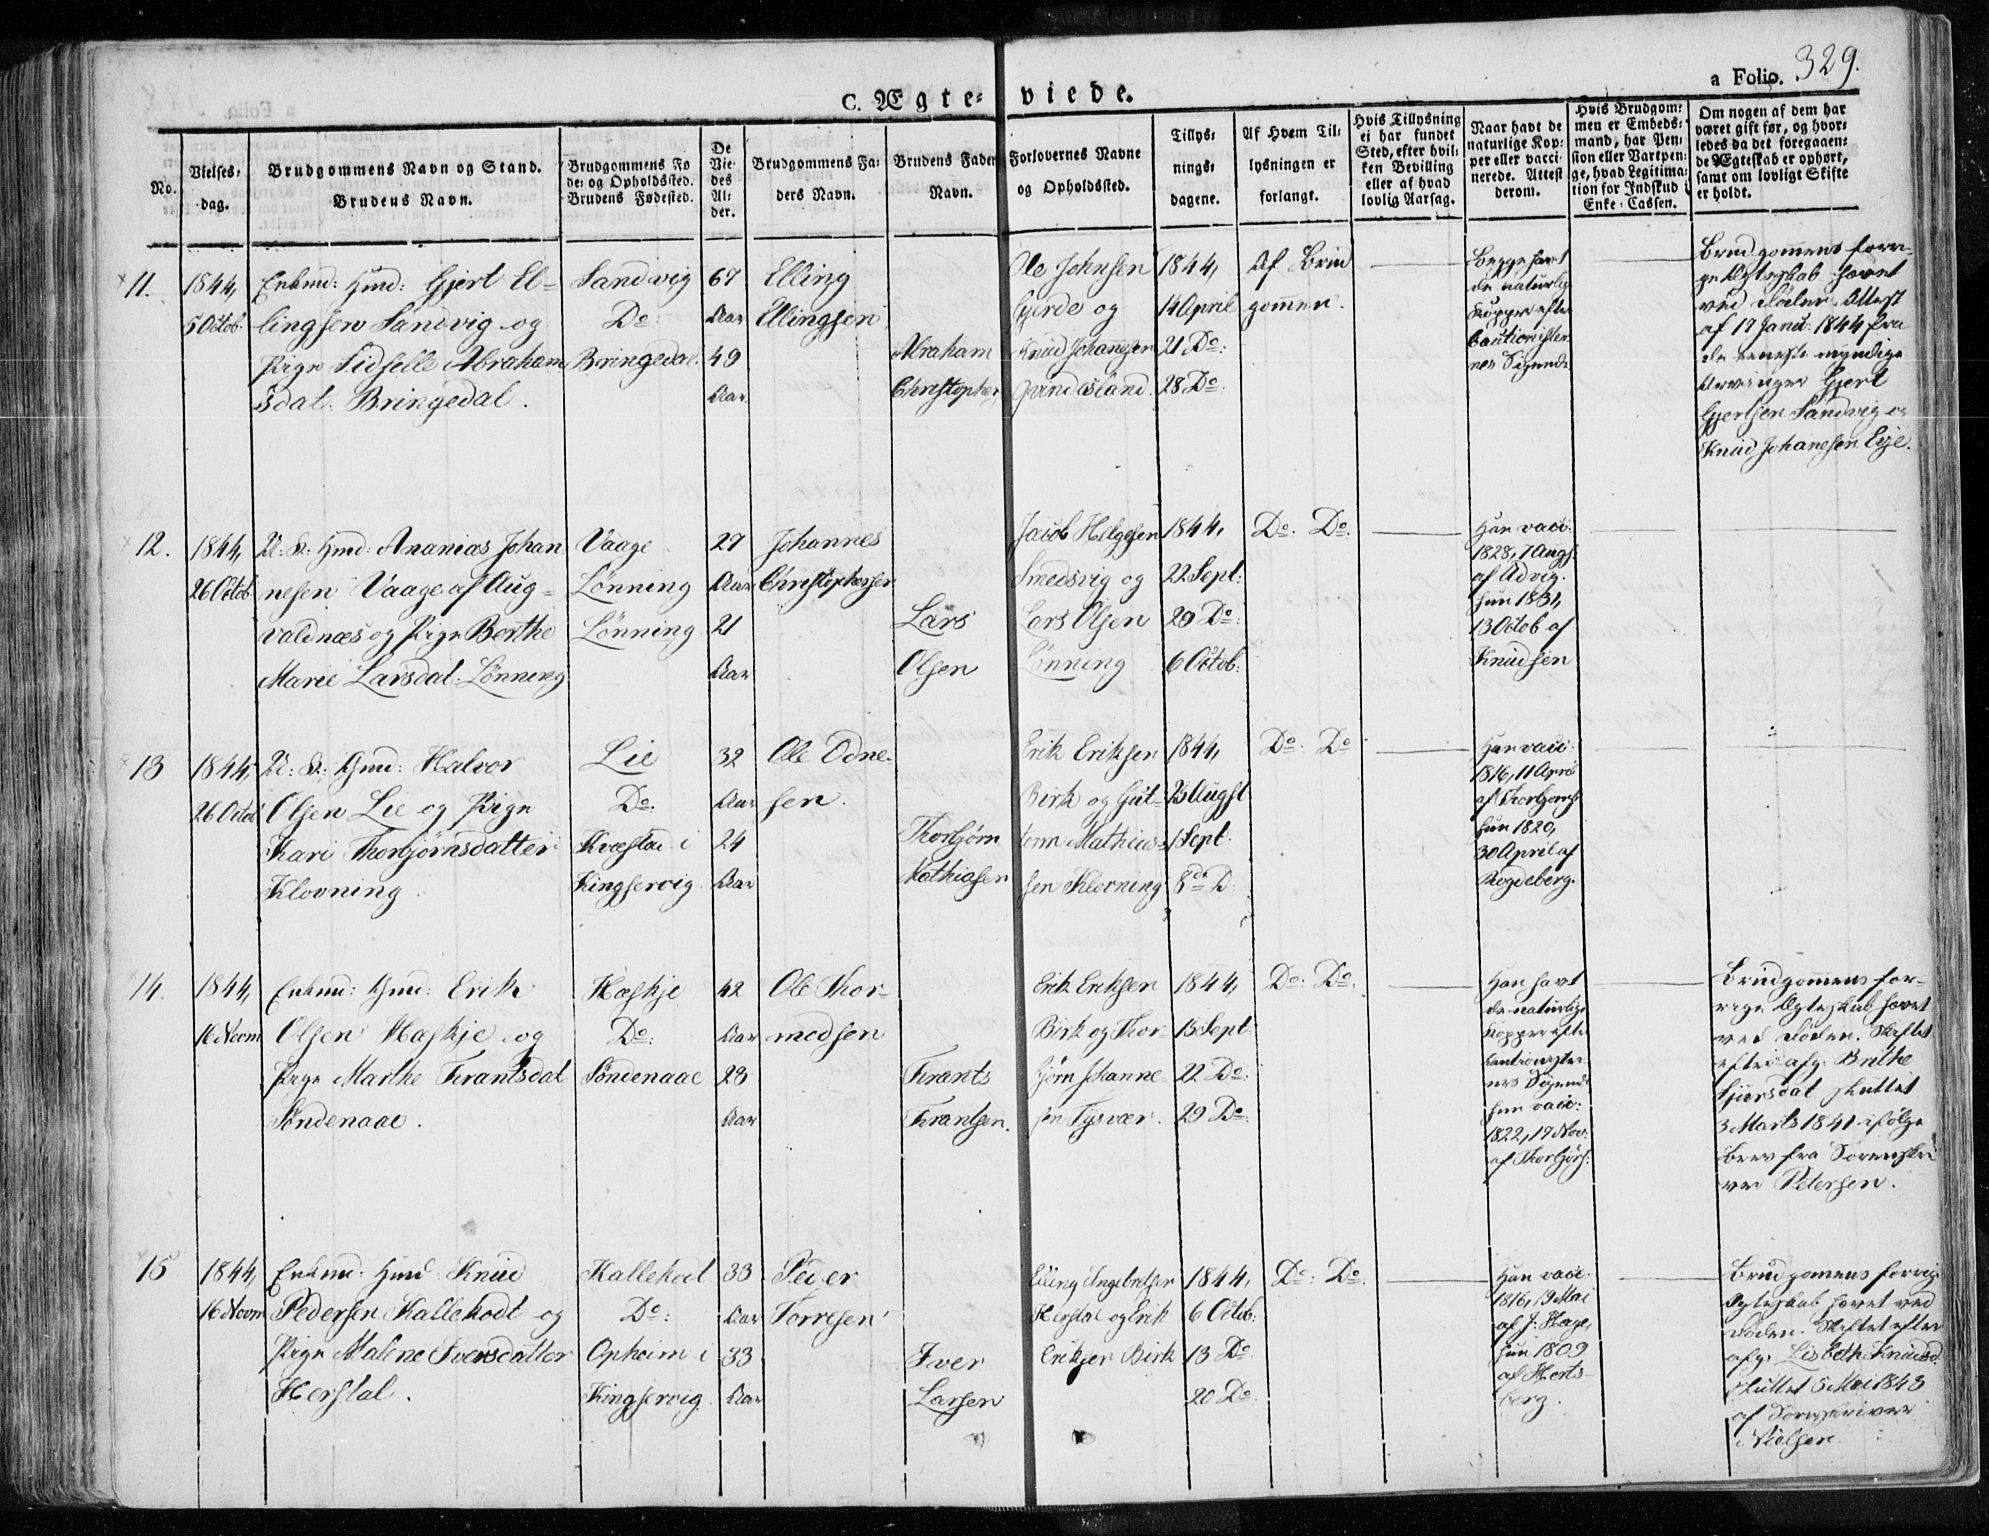 329.
a Folio.
C. Ægte= viede.
No.
Vielses=
dag.
Brudgommens Navn og Stand.
Brudens Navn.
Brudgommens Fø
de= og Opholdssted.
Brudens Fødested.
De
Vie=
des
Al=
der.
Brudgommens Fa=
ders Navn.
Brudens Faders
Navn.
Forlovernes Navne
og Opholdssted.
Tillys=
nings=
dagene.
Af Hvem Til=
lysningen er
forlangt.
Hvis Tillysning
ei har fundet
Sted, efter hvil=
ken Bevilling
eller af hvad
lovlig Aarsag.
Naar havt de
naturlige Kop=
per eller vacci=
nerede. Attest
derom.
Hvis Brudgom=
men er Embeds=
mand, har Pen=
sion eller Vartpen=
ge, hvad Legitima=
tion for Indskud i
Enke=Cassen.
Om nogen af dem har
været gift før, og hvor=
ledes da det foregaaen=
de Ægteskab er ophørt,
samt om lovligt Skifte
er holdt.
11.
1844,
5 Octob.
Enkmd: Gmd: Gjert El=
lingsen Sandvig og
Pige Sidselle Abraham
sdat. Bringedal.
Sandvig
Do
Bringedal.
67
Aar
49
Aar
Elling
Ellingsen
Abraham
Christophers
Ole Johnsen
Gjerde og
Knud Johanesen
Qvindesland.
1844,
14 April
21 Do:
28 Do:
Af Brud
gommen.
Begge havt
de naturlig
Kopper efter
Cautionister
nes Sigende
Brudgommens forri=
ge Ægteskab hævet
ved Døden. Attest
af 17 Janu: 1844 fra
de eneste myndige
Arvinger Gjert
Gjertsen Sandvig og
Knud Johanesen Eje.
12.
1844,
26 Octob.
U: K: Gmd: Ananias Johan
nesen Vaage af Aug=
valdnæs og Pige Berthe
Marie Larsdat. Lønning
Vaage
Lønning
Lønning.
27
Aar
21
Aar
Johannes
Christophersen
Lars
Olsen
Jacob Helgesen
Smedsvig og
Lars Olsen
Lønning
1844,
22 Sept:
29 Do:
6 Octob:
Do: Do
Han vacc:
1828, 7 Augs
af Advig.
Hun 1831,
13 Octob af
Knudsen
13
1844,
26 Octob
U: K: Gmd: Halvor
Olsen Lie og Pige
Kari Thorbjørnsdatter
Klovning.
Lie
Do:
Kvæstad i
Kingservig.
32
Aar
24
Aar
Ole Odne=
sen.
Thorbjørn
Mathiasen
Erik Eriksen
Birk og Gut=
torm Mathias=
sen Klovning
1844,
25 Augst
1 Sept:
8de D.
Do: Do
Han vacc:
1816, 11 April
af Thorbjørns.
Hun 1820,
30 April af
Rogdeberg.
14.
1844,
16 Novm
Enkmd: Gmd: Erik
Olsen Haskje og
Pige Marthe Frantsdat
Søndenaae.
Haskje
Do:
Søndenaae
42
Aar
23
Aar
Ole Thor=
modsen
Frants
Frantsen.
Erik Eriksen
Birk og Thor
bjørn Johanne=
sen Tysvær.
1844,
15 Sept:
22 Do:
29 Do:
Do: Do:
Han havt
de naturlige
Kopper efter
Cautionister
nes Sigende
Hun vacc:
1822, 17 Nov:
af Thorbjørs:
Brudgommens for=
rige Ægteskab hævet
ved Døden. Skiftet
efter afg: Brithe
Sjursdat sluttet
3 Marts 1841 ifølge
Brev fra Sorenskri
ver Petersen.
15
1844,
16 Novm
Enkmd: Gmd: Knud
Pedersen Kallekodt og
Pige Malene Iversdatter
Herstal.
Kallekodt
Do:
Opheim i
Kingservig.
33
Aar
33
Aar
Peder
Torresen
Iver
Larsen
Elling Ingebretsen
Herstal og Erik
Eriksen Birk
1844,
6 Octob:
13 Do
20 Do:
Do: Do:
Han vacc.
1816, 19 Mai
af J: Hage,
Hun 1809
af Herts-
berg.
Brudgomens forrige
Ægteskab hævet ved
Døden. Skiftet efter
afg: Lisbeth Knudsd
sluttet 5 Mai 1843
af Sorenskriver
Nielsen